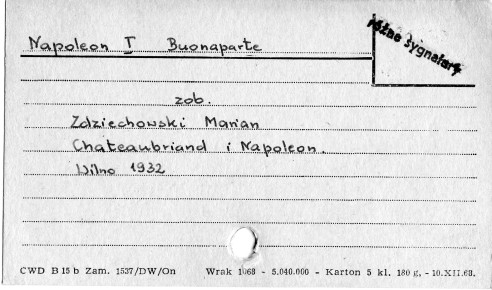 Napoleon I Buonaparte
różne sygnatury
zob.
Zdziechowski Marian
Chateaubriand i Napoleon.
Wilno 1932
CWD B 15 b Zam. 1537/DW/On Wrak 1068 - 5.040.000 - Karton 5 kl. 180 g, - 10.XII.68.